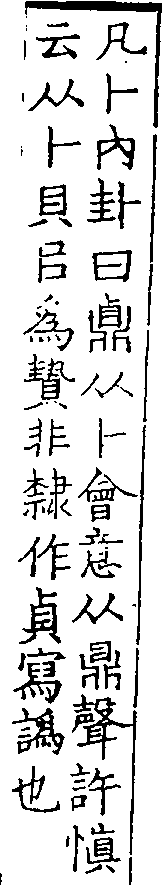 凡卜內卦曰鼑从卜會意从鼎聲許愼
云从卜貝㠯爲贄非隸作貞寫譌也